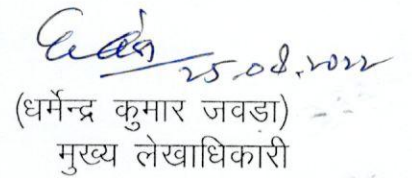 25.08.2022
(धर्मेन्द्र कुमार जवडा)
मुख्य लेखाधिकारी